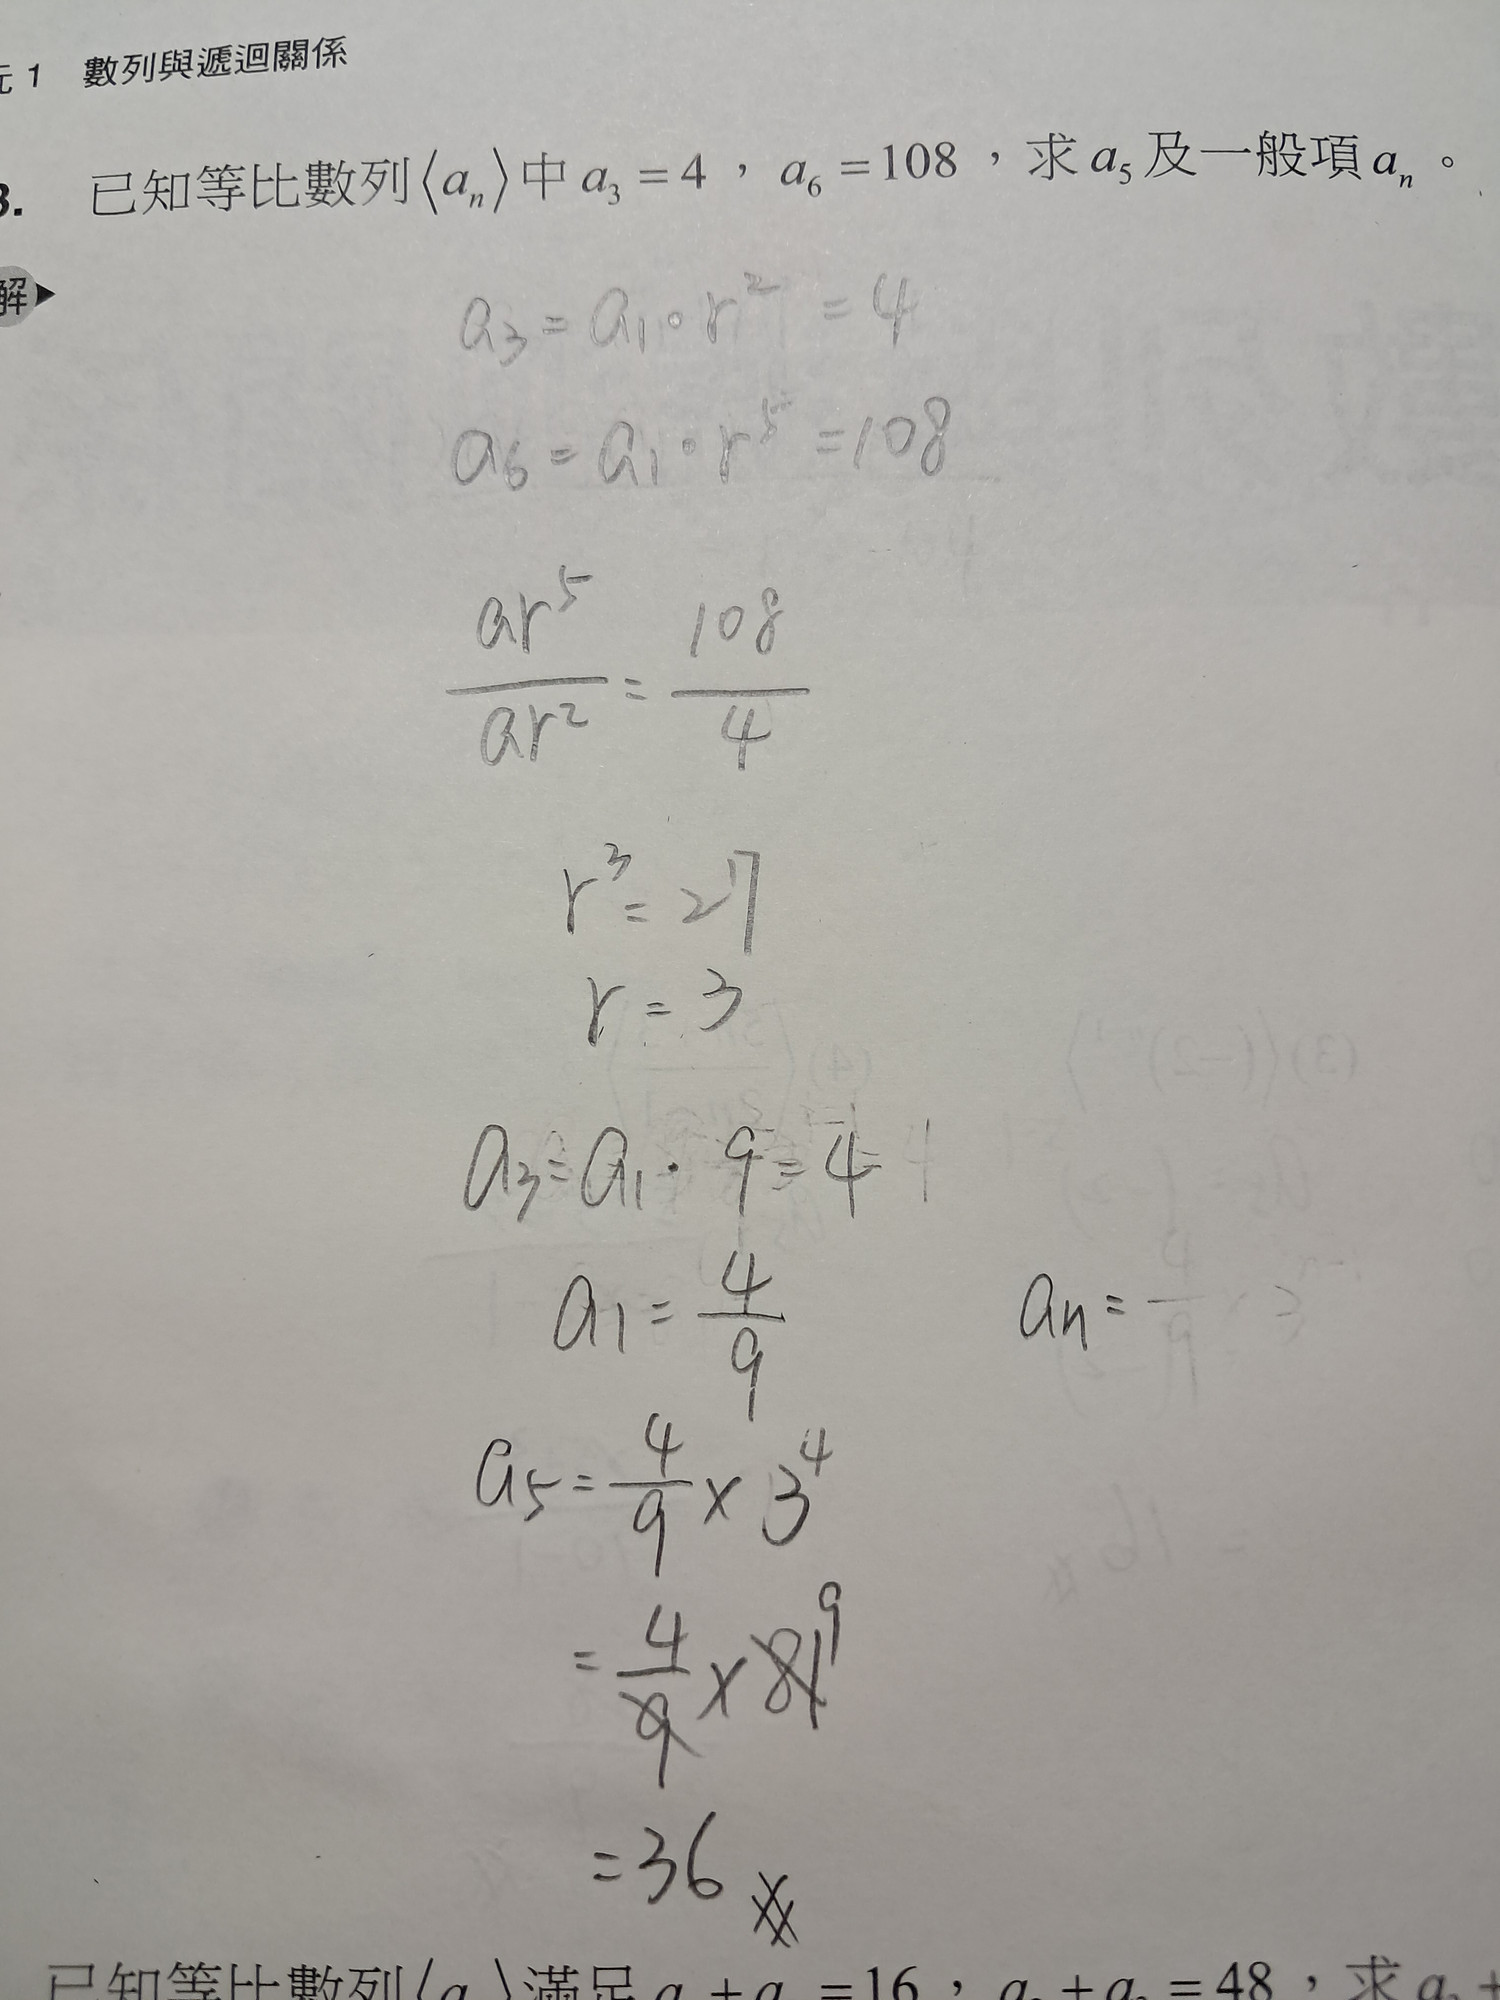 元 1 數列與遞迴關係
3. 已知等比數列⟨aₙ⟩中 a₃ = 4，a₆ = 108，求 a₅ 及一般項 aₙ。
解
a₃ = a₁ · r² = 4
a₆ = a₁ · r⁵ = 108
ar⁵/ar² = 108/4
r³ = 27
r = 3
a₃ = a₁ · 9 = 4
a₁ = 4/9
aₙ =
a₅ = 4/9 × 3⁴
= 4/9 × 81 9
= 36
已知等比數列⟨a⟩滿足 a + a = 16，a + a = 48，求 a +